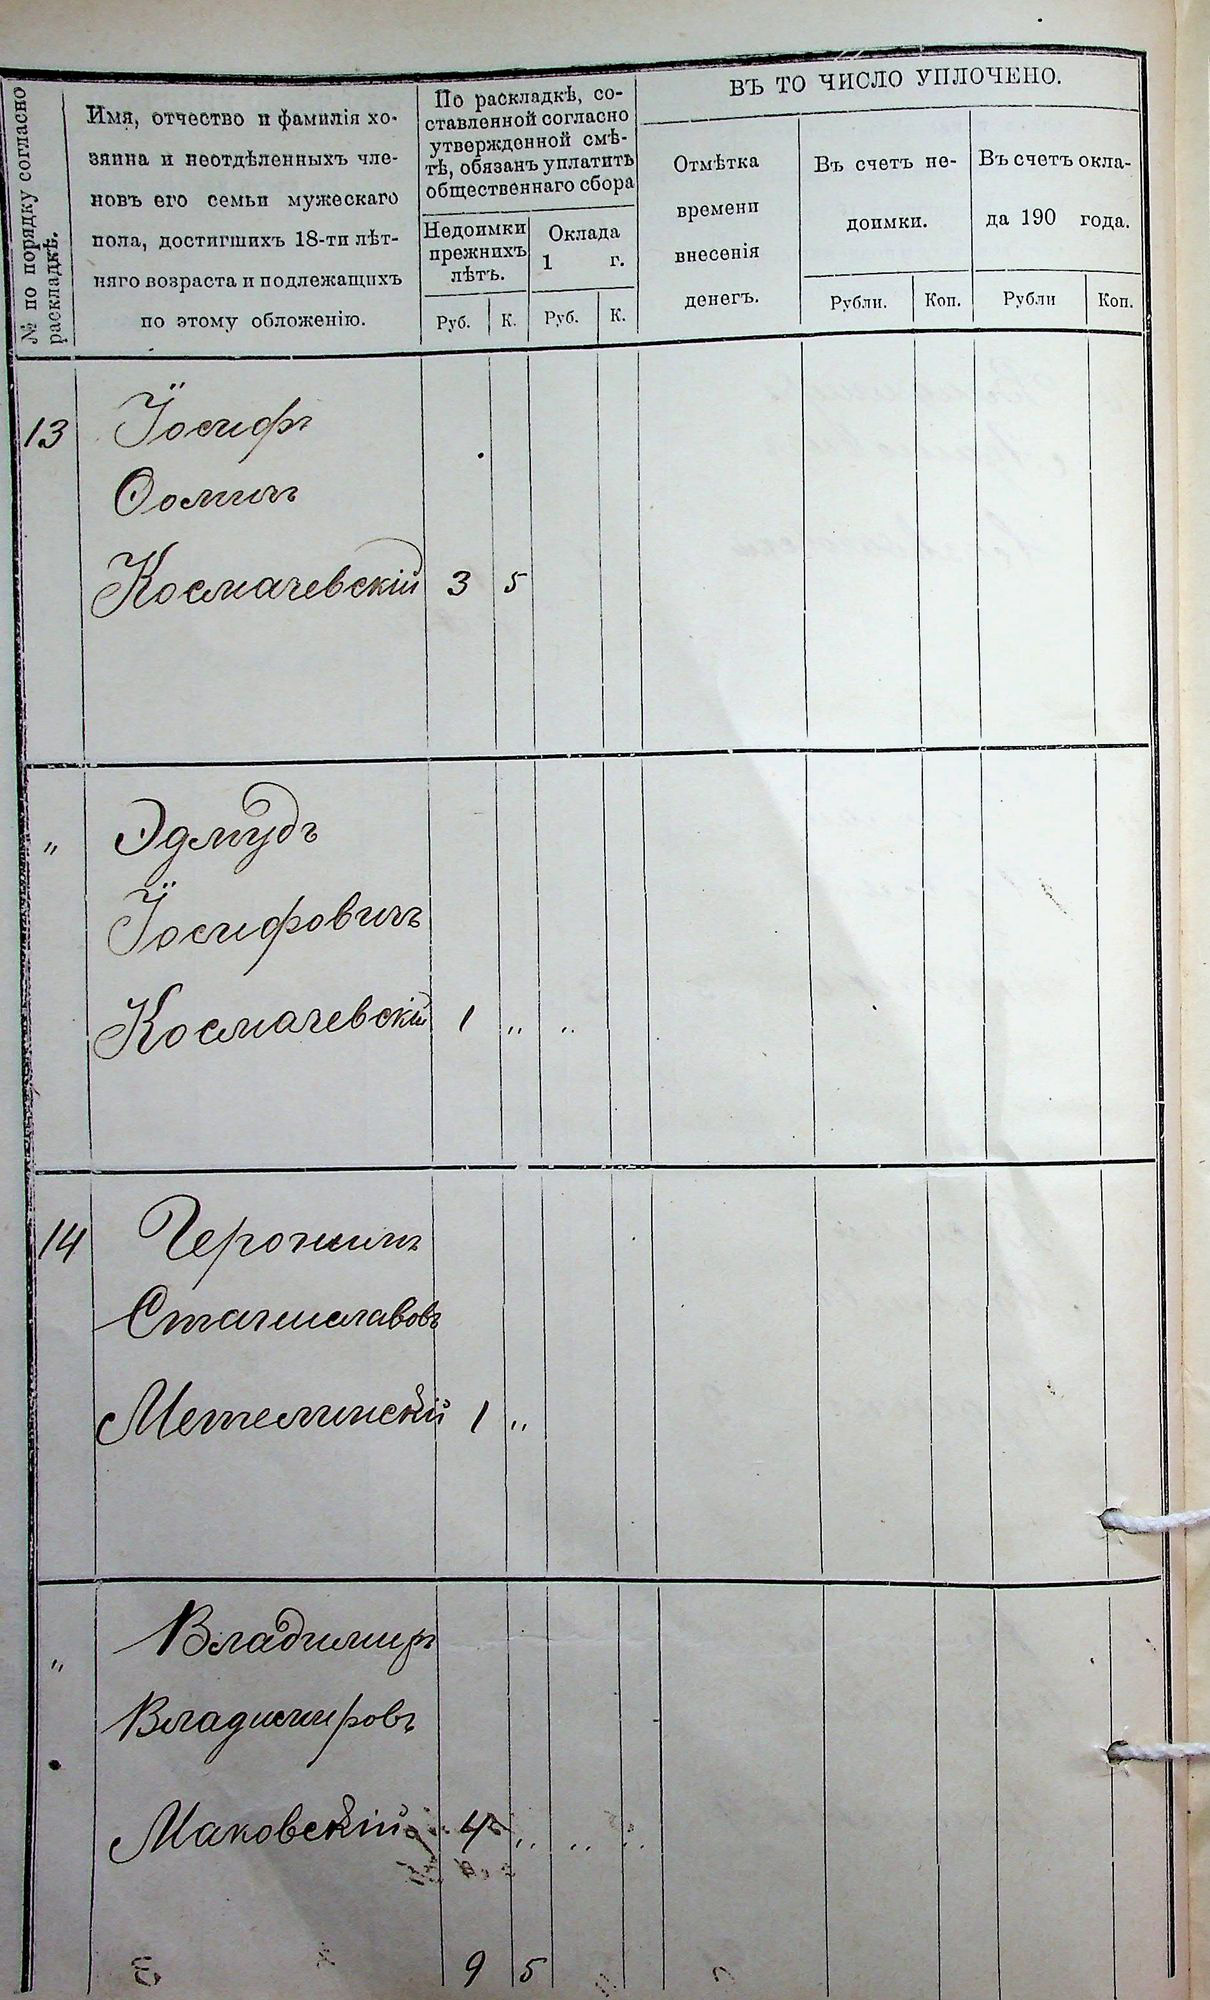 № по порядку согласно
раскладкѣ.
Имя, отчество и фамилія хо-
зяина и неотдѣленныхъ чле-
новъ его семьи мужескаго
пола, достигшихъ 18-ти лѣт-
няго возраста и подлежащихъ
по этому обложенію.
По раскладкѣ, со-
ставленной согласно
утвержденной смѣ-
тѣ, обязанъ уплатить
общественнаго сбора
Недоимки
прежнихъ
лѣтъ.
Оклада
1 г.
Руб. К. Руб. К.
ВЪ ТО ЧИСЛО УПЛОЧЕНО.
Отмѣтка
времени
внесенія
денегъ.
Въ счетъ не-
доимки.
Рубли. Коп.
Въ счетъ окла-
да 190 года.
Рубли Коп.
13 Іосифъ
Ѳомичъ
Космачевскій 3 5
" Эдмудъ
Іосифовичъ
Космачевскій 1 " "
14 Геронимъ
Станиславовъ
Метелинскій 1 "
" Владимиръ
Владимировъ
Маковскій 4 " " "
9 5